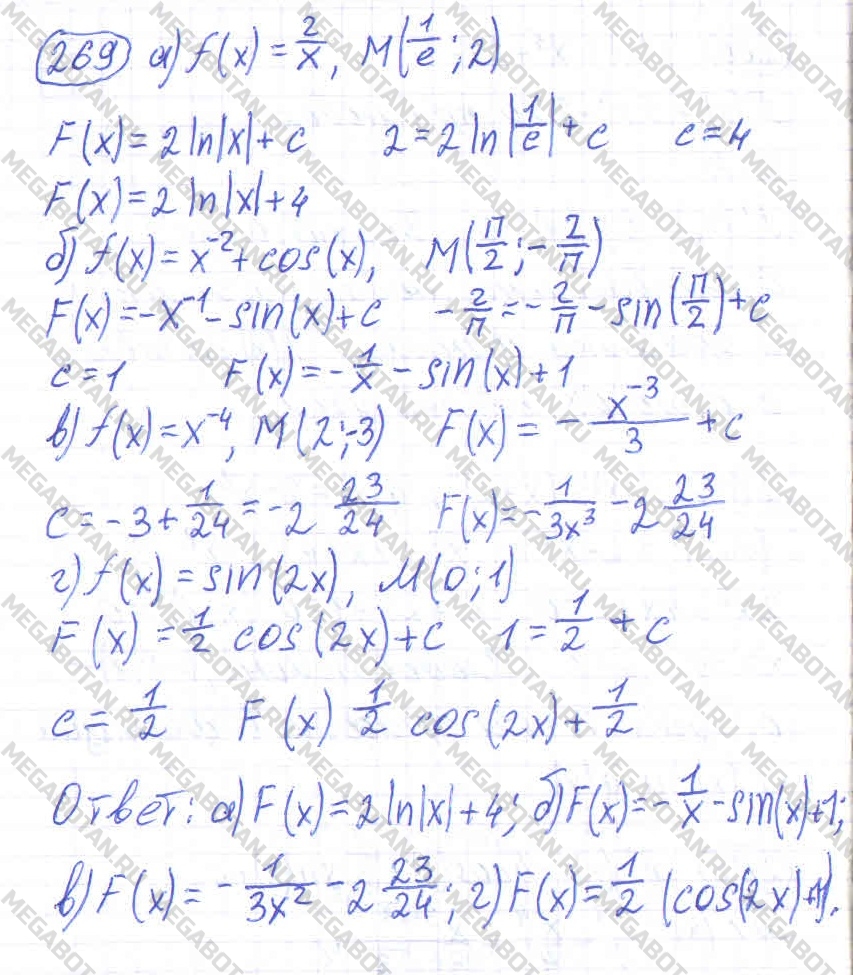 269 а) f(x) = 2/x, M(1/e; 2)
F(x) = 2 ln|x| + c 2 = 2 ln|1/e| + c c = 4
F(x) = 2 ln|x| + 4
б) f(x) = x^-2 + cos(x), M(π/2; -2/π)
F(x) = -x^-1 - sin(x) + c -2/π = -2/π - sin(π/2) + c
c = 1 F(x) = -1/x - sin(x) + 1
в) f(x) = x^-4, M(2; -3) F(x) = -x^-3/3 + c
c = -3 + 1/24 = -2 23/24 F(x) = -1/3x^3 - 2 23/24
г) f(x) = sin(2x), M(0; 1)
F(x) = 1/2 cos(2x) + c 1 = 1/2 + c
c = 1/2 F(x) 1/2 cos(2x) + 1/2
Ответ: а) F(x) = 2 ln|x| + 4; б) F(x) = -1/x - sin(x) + 1;
в) F(x) = -1/3x^2 - 2 23/24; г) F(x) = 1/2 (cos(2x) + 1).
MEGABOTAN.RU